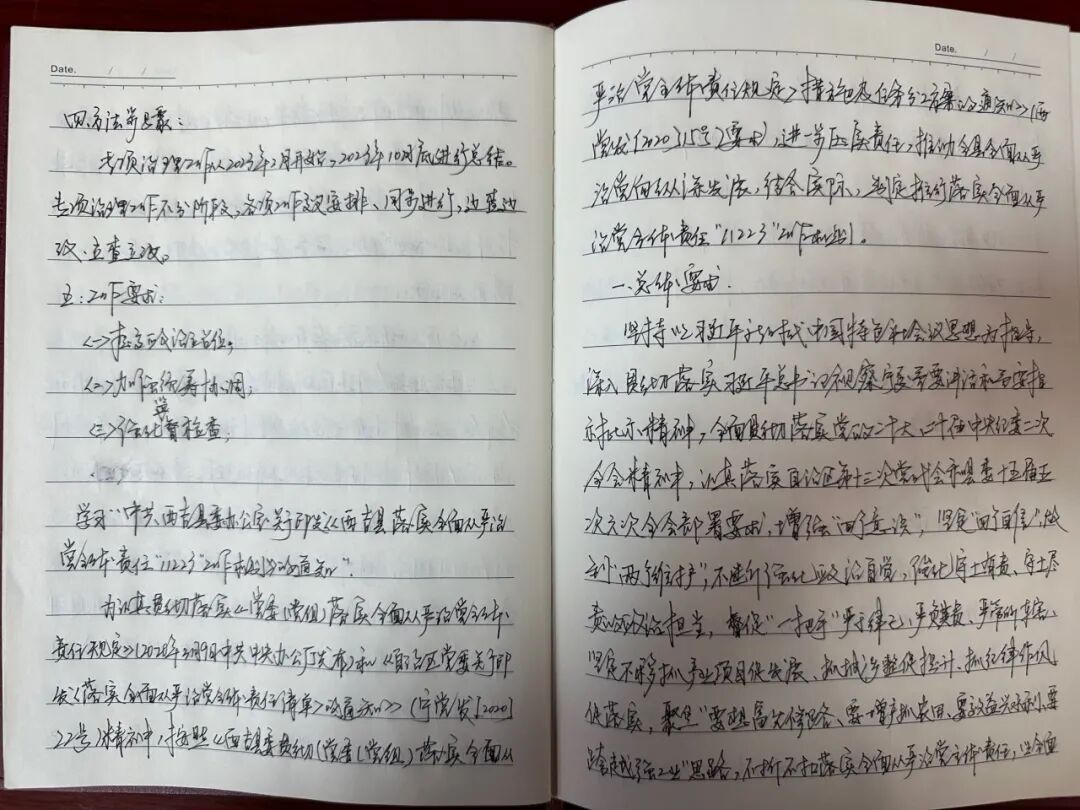 Date. / /
四.方法步骤:
专项治理工作从2023年2月开始,2023年10月底进行总结。
专项治理工作不分阶段,各项工作交叉安排、同步进行,边整边
改、立查立改。
五:工作要求:
<一>提高政治站位。
<二>加强统筹协调;
<三>强化监督检查;
学习"中共西吉县委办公室关于印发《西吉县落实全面从严治
党主体责任"11223"工作机制》的通知"。
为认真贯彻落实《党委(党组)落实全面从严治党主体
责任规定》(2020年3月9日中共中央办公厅发布)和《自治区党委关于印
发<落实全面从严治党主体责任清单>的通知》(宁党发[2020]
22号)精神,按照《西吉县委贯彻<党委(党组)落实全面从
Date. / /
严治党主体责任规定>措施及任务分工方案的通知》(西
党发[2020]15号)要求,进一步压实责任,推动全县全面从严
治党向纵深发展,结合实际,制定推行落实全面从严
治党主体责任"11223"工作机制。
一、总体要求.
坚持以习近平新时代中国特色社会主义思想为指导,
深入贯彻落实习近平总书记视察宁夏重要讲话和重要指
示批示精神,全面贯彻落实党的二十大、二十届中央纪委二次
全会精神,认真落实自治区第十三次党代会和县委十五届五
次六次全会部署要求,增强"四个意识",坚定"四个自信",做
到"两个维护",不断强化政治自觉,强化守土有责、守土尽
责的政治担当,督促"一把手"严于律己、严负其责、严管所辖,
坚定不移抓产业项目促发展、抓城乡整治提升、抓纪律作风
促落实,聚焦"要想富大修路、要增产抓农田、要致富兴水利、要
跨越强工业"思路,不折不扣落实全面从严治党主体责任,以全面